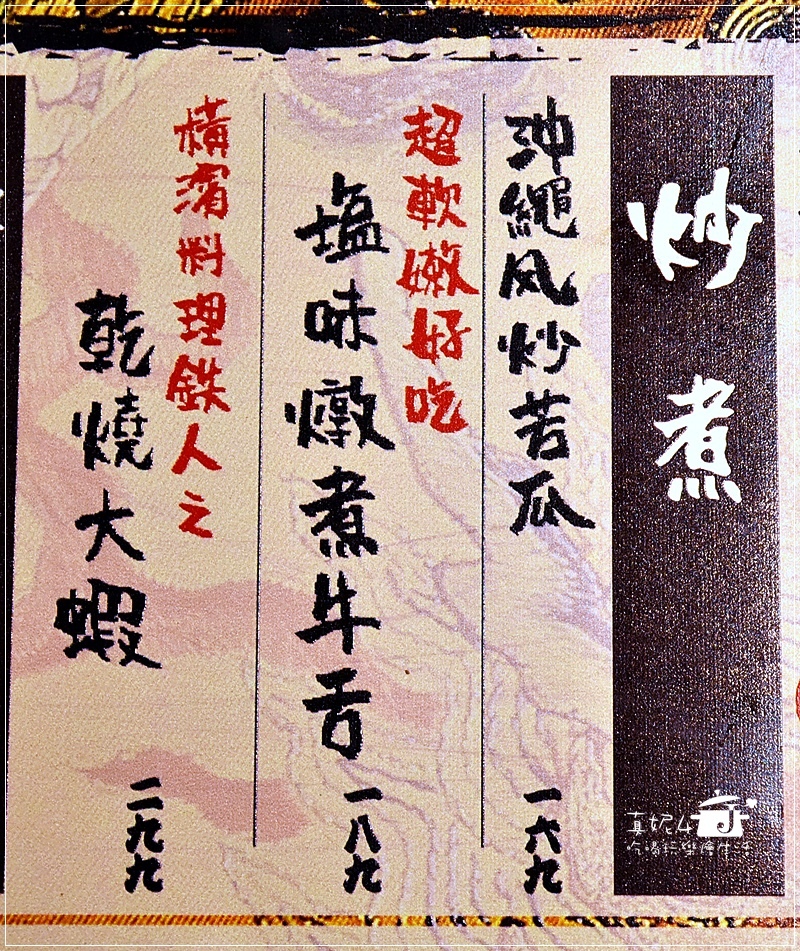 炒煮
沖繩风炒苦瓜
一六九
超軟嫩好吃
塩味燉煮牛舌
一八九
橫濱料理鉄人之
乾燒大蝦
二九九
真妮4
吃喝玩樂繪生活